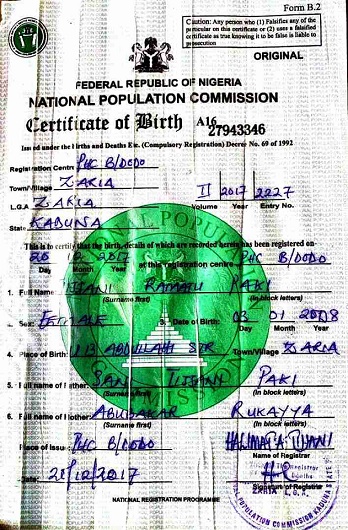 Form B.2
Caution: Any person who (1) Falsifies any of the
particular on this certificate or (2) uses a falsified
certificate as true knowing it to be false is liable to
prosecution
ORIGINAL
FEDERAL REPUBLIC OF NIGERIA
NATIONAL POPULATION COMMISSION
Certificate of Birth A16 27943346
Issued under the Births and Deaths Etc. (Compulsory Registration) Decree No. 69 of 1992
Registration Centre PHC B/DODO
Town/Village ZARIA II 2017 2227
L.G.A ZARIA Volume Year Entry No.
State KADUNA
This is to certify that the birth, details of which are recorded herein has been registered on
20 12 2017 at this registration centre PHC B/DODO
Day Month Year
1. Full Name TIJJANI RAMATU PAKI
(Surname first) (In block letters)
Sex: FEMALE 3. Date of Birth: 03 01 2008
Day Month Year
4. Place of Birth: ABDULLAHI STR Town/Village ZARIA
5. Full name of Father: SANI TIJJANI PAKI
(Surname first) (In block letters)
6. Full name of Mother: ABUBAKAR RUKAYYA
(Surname first) (In block letters)
Place of Issue: PHC B/DODO HALIMATA TIJJANI
Name of Registrar
Date: 2017
Signature of Registrar
ZARIA L.G.A.
NATIONAL REGISTRATION PROGRAMME